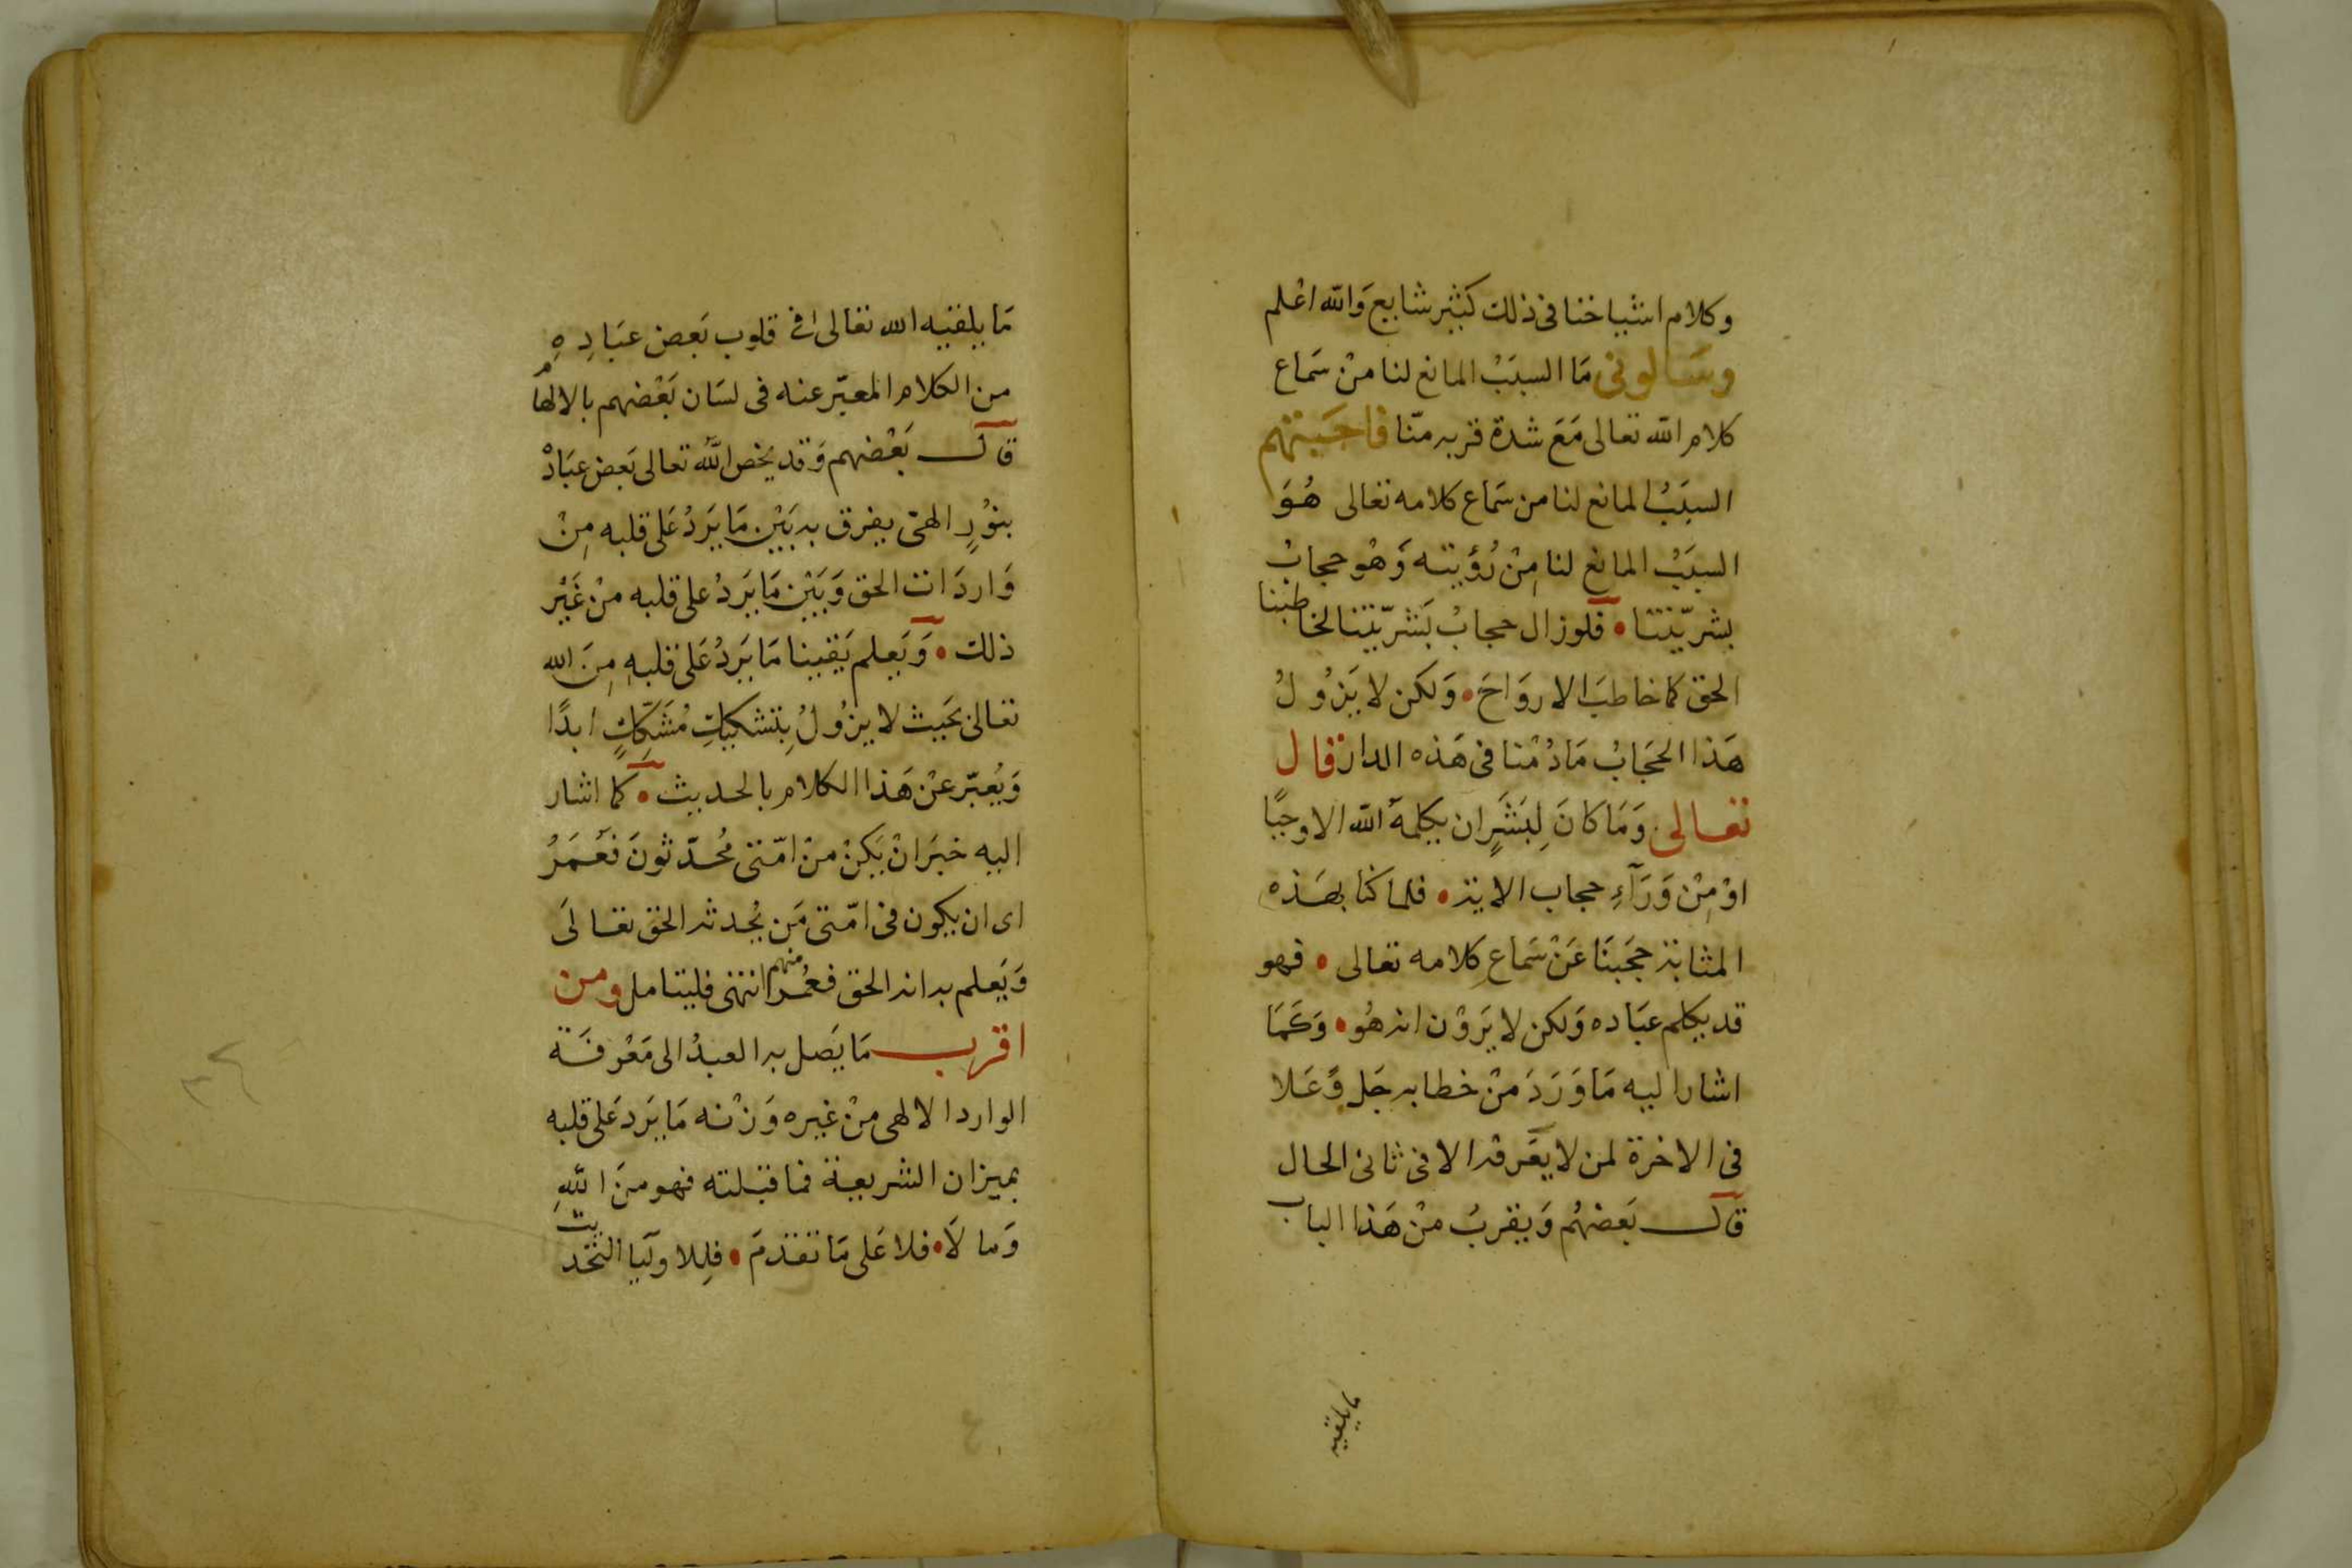 وكلام اشياخنا فى ذلك كثير شايع وَالله اعْلم
وسَالونى مَا السبَبْ المانع لنا منْ سَماع
كلام الله تعالى مَعَ شدة قربه منّا فاجَبتهم
السبَبُ المانع لنا من سَماع كلامه تعالى هُوَ
السبَبْ المانع لنا مِنْ رُؤيته وَهْو حجابْ
بشريّتنا • فلو زال حجابْ بَشريّتنا لخاطبنا
الحق كما خاطبَ الاروَاحَ • وَلكن لا يَزُولُ
هَذا الحجَابُ مَا دُمْنا فى هَذه الدار قال
تعالى وَمَا كانَ لِبَشَرٍ ان يكلمهُ الله الا وحيًا
اوْ مِنْ وَرَآءِ حجاب الاية • فلما كنا بهَذه
المثابة حجَبنَا عَنْ سَماعِ كلامه تعالى • فهو
قد يكلم عبَاده وَلكن لا يَرَوْن انه هُو • وَكمَا
اشار اليه مَا وَرَدَ منْ خطابه جَل وَعَلا
فى الاخرة لمن لا يعَرفه الا فى ثانى الحال
قال بَعضهُم وَيقربُ منْ هَذا الباب
مايلقيه
مَا يلقيه الله تعالى فى قلوب بَعض عبَادِهِ
من الكلام المعبّر عنه فى لسَان بَعْضهم بالالهام
قال بَعْضهم وَقد يخص الله تعالى بَعض عبَادهْ
بنوُرٍ الهىّ يفرق به بَيْن مَا يَردُ عَلى قلبه مِنْ
وَاردَات الحق وَبَيْن مَا يَردُ على قلبه منْ غَيْر
ذلك • وَيَعلم يَقينا مَا يَردُ عَلى قلبهِ مِنَ الله
تعالى بحَيث لا يزُولُ بِتشكيكِ مُشَكِّكٍ ابدًا
وَيُعبّر عنْ هَذا الكلام بالحديث • كما اشار
اليه خبرَ انْ يَكنْ منْ امّتى مُحدّثونَ فعُمَرُ
اى ان يكون فى امّتى مَن يُحدثه الحق تعَالَى
وَيَعلم به انه الحق فعُمر منهم انتهى فليتامل ومن
اقرب مَا يَصل به العبدُ الى مَعْرفَة
الوارد الالهى منْ غيره وَزْنه مَا يَرد عَلى قلبه
بميزان الشريعة فما قبلته فهو منَ اللهِ
وَما لَا • فلا عَلى مَا تقدمَ • فلِلاوليَا التحديث